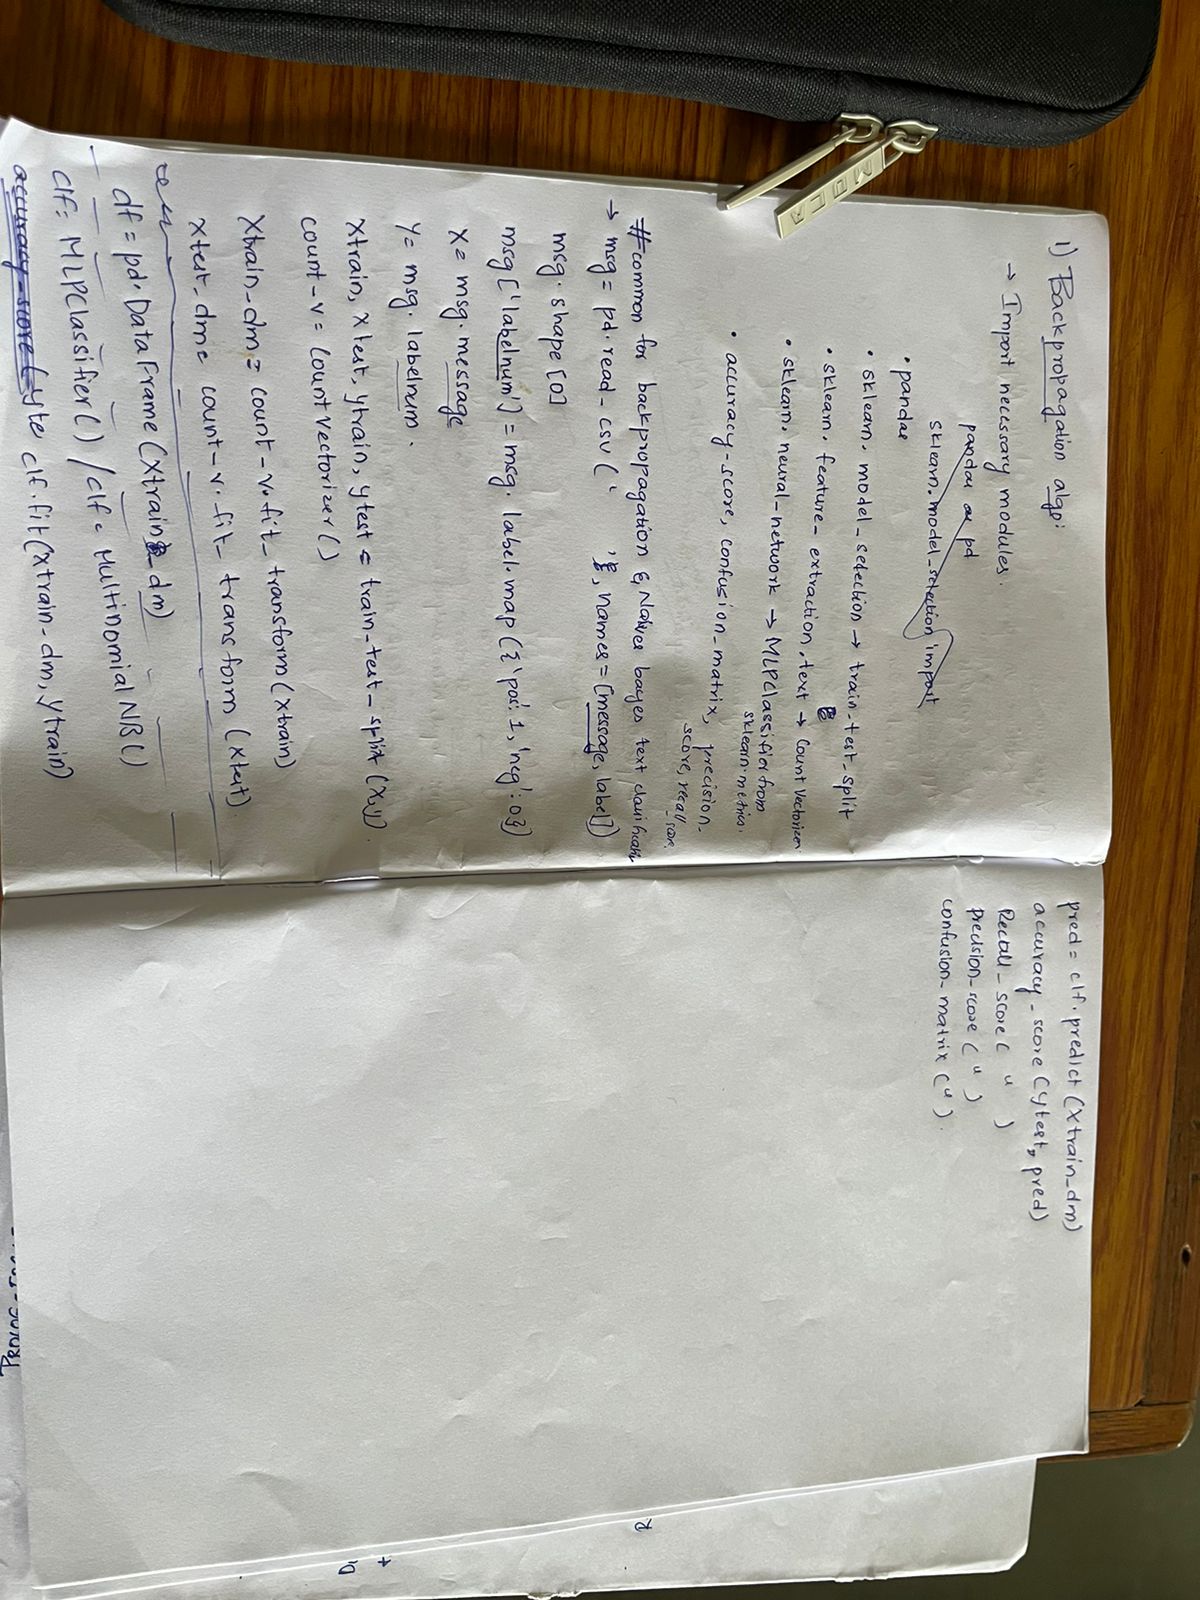 1) Backpropagation algo:
→ Import necessary modules.
pandas as pd
sklearn.model_selection import
• pandas
• sklearn. model_selection → train_test_split
• sklearn. feature_extraction.text → CountVectorizer
• sklearn. neural_network → MLPClassifier from
sklearn.metrics.
• accuracy_score, confusion_matrix, precision_
score, recall_score.
#common for backpropagation & Naives bayes text
→ msg = pd.read_csv(' ', names=[message, label])
msg.shape[0]
msg['labelnum'] = msg. label.map({'pos':1, 'neg':0})
X = msg.message
Y = msg. labelnum.
Xtrain, xtest, ytrain, ytest = train_test_split (X,y).
count_v = CountVectorizer()
Xtrain_dm = count_v.fit_transform(xtrain)
xtest_dm = count_v.fit_transform (xtest).
df = pd.DataFrame(Xtrain_dm)
clf = MLPClassifier() / clf = MultinomialNB()
accuracy_score(yte clf.fit(xtrain_dm, ytrain)
pred = clf.predict (Xtrain_dm)
accuracy_score (ytest, pred)
Recall_score( " )
precision_score ( " )
confusion_matrix ( " ).
R
+
D